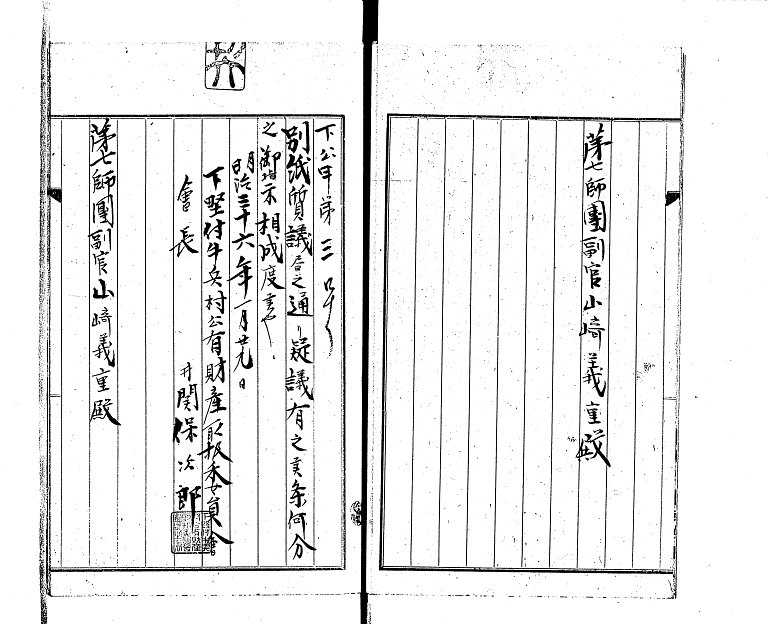 第七師團副官山崎義重殿
下公甲第三号
別紙質議之通リ疑議有之候条何分
之御指示相成度
明治三十六年一月廿九日
下野付牛兵村公有財産取扱委員會
會長
井関保次郎
第七師團副官山崎義重殿